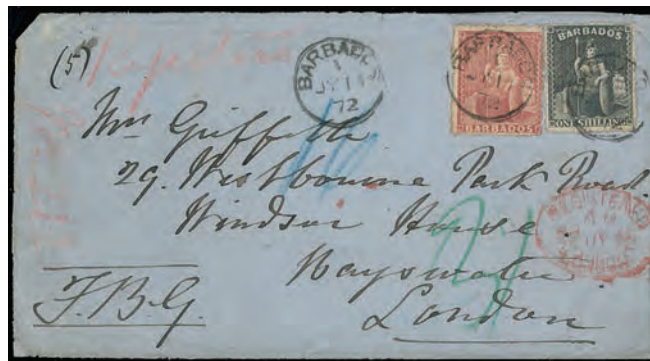 (5)
Registered
BARBADOS
1
JY 11
72
BARBADOS
BARBADOS
ONE SHILLING
Mrs Griffith
29. Westbourne Park Road.
Windsor House.
Bayswater
London
F.B.G.
REGISTERED
LONDON